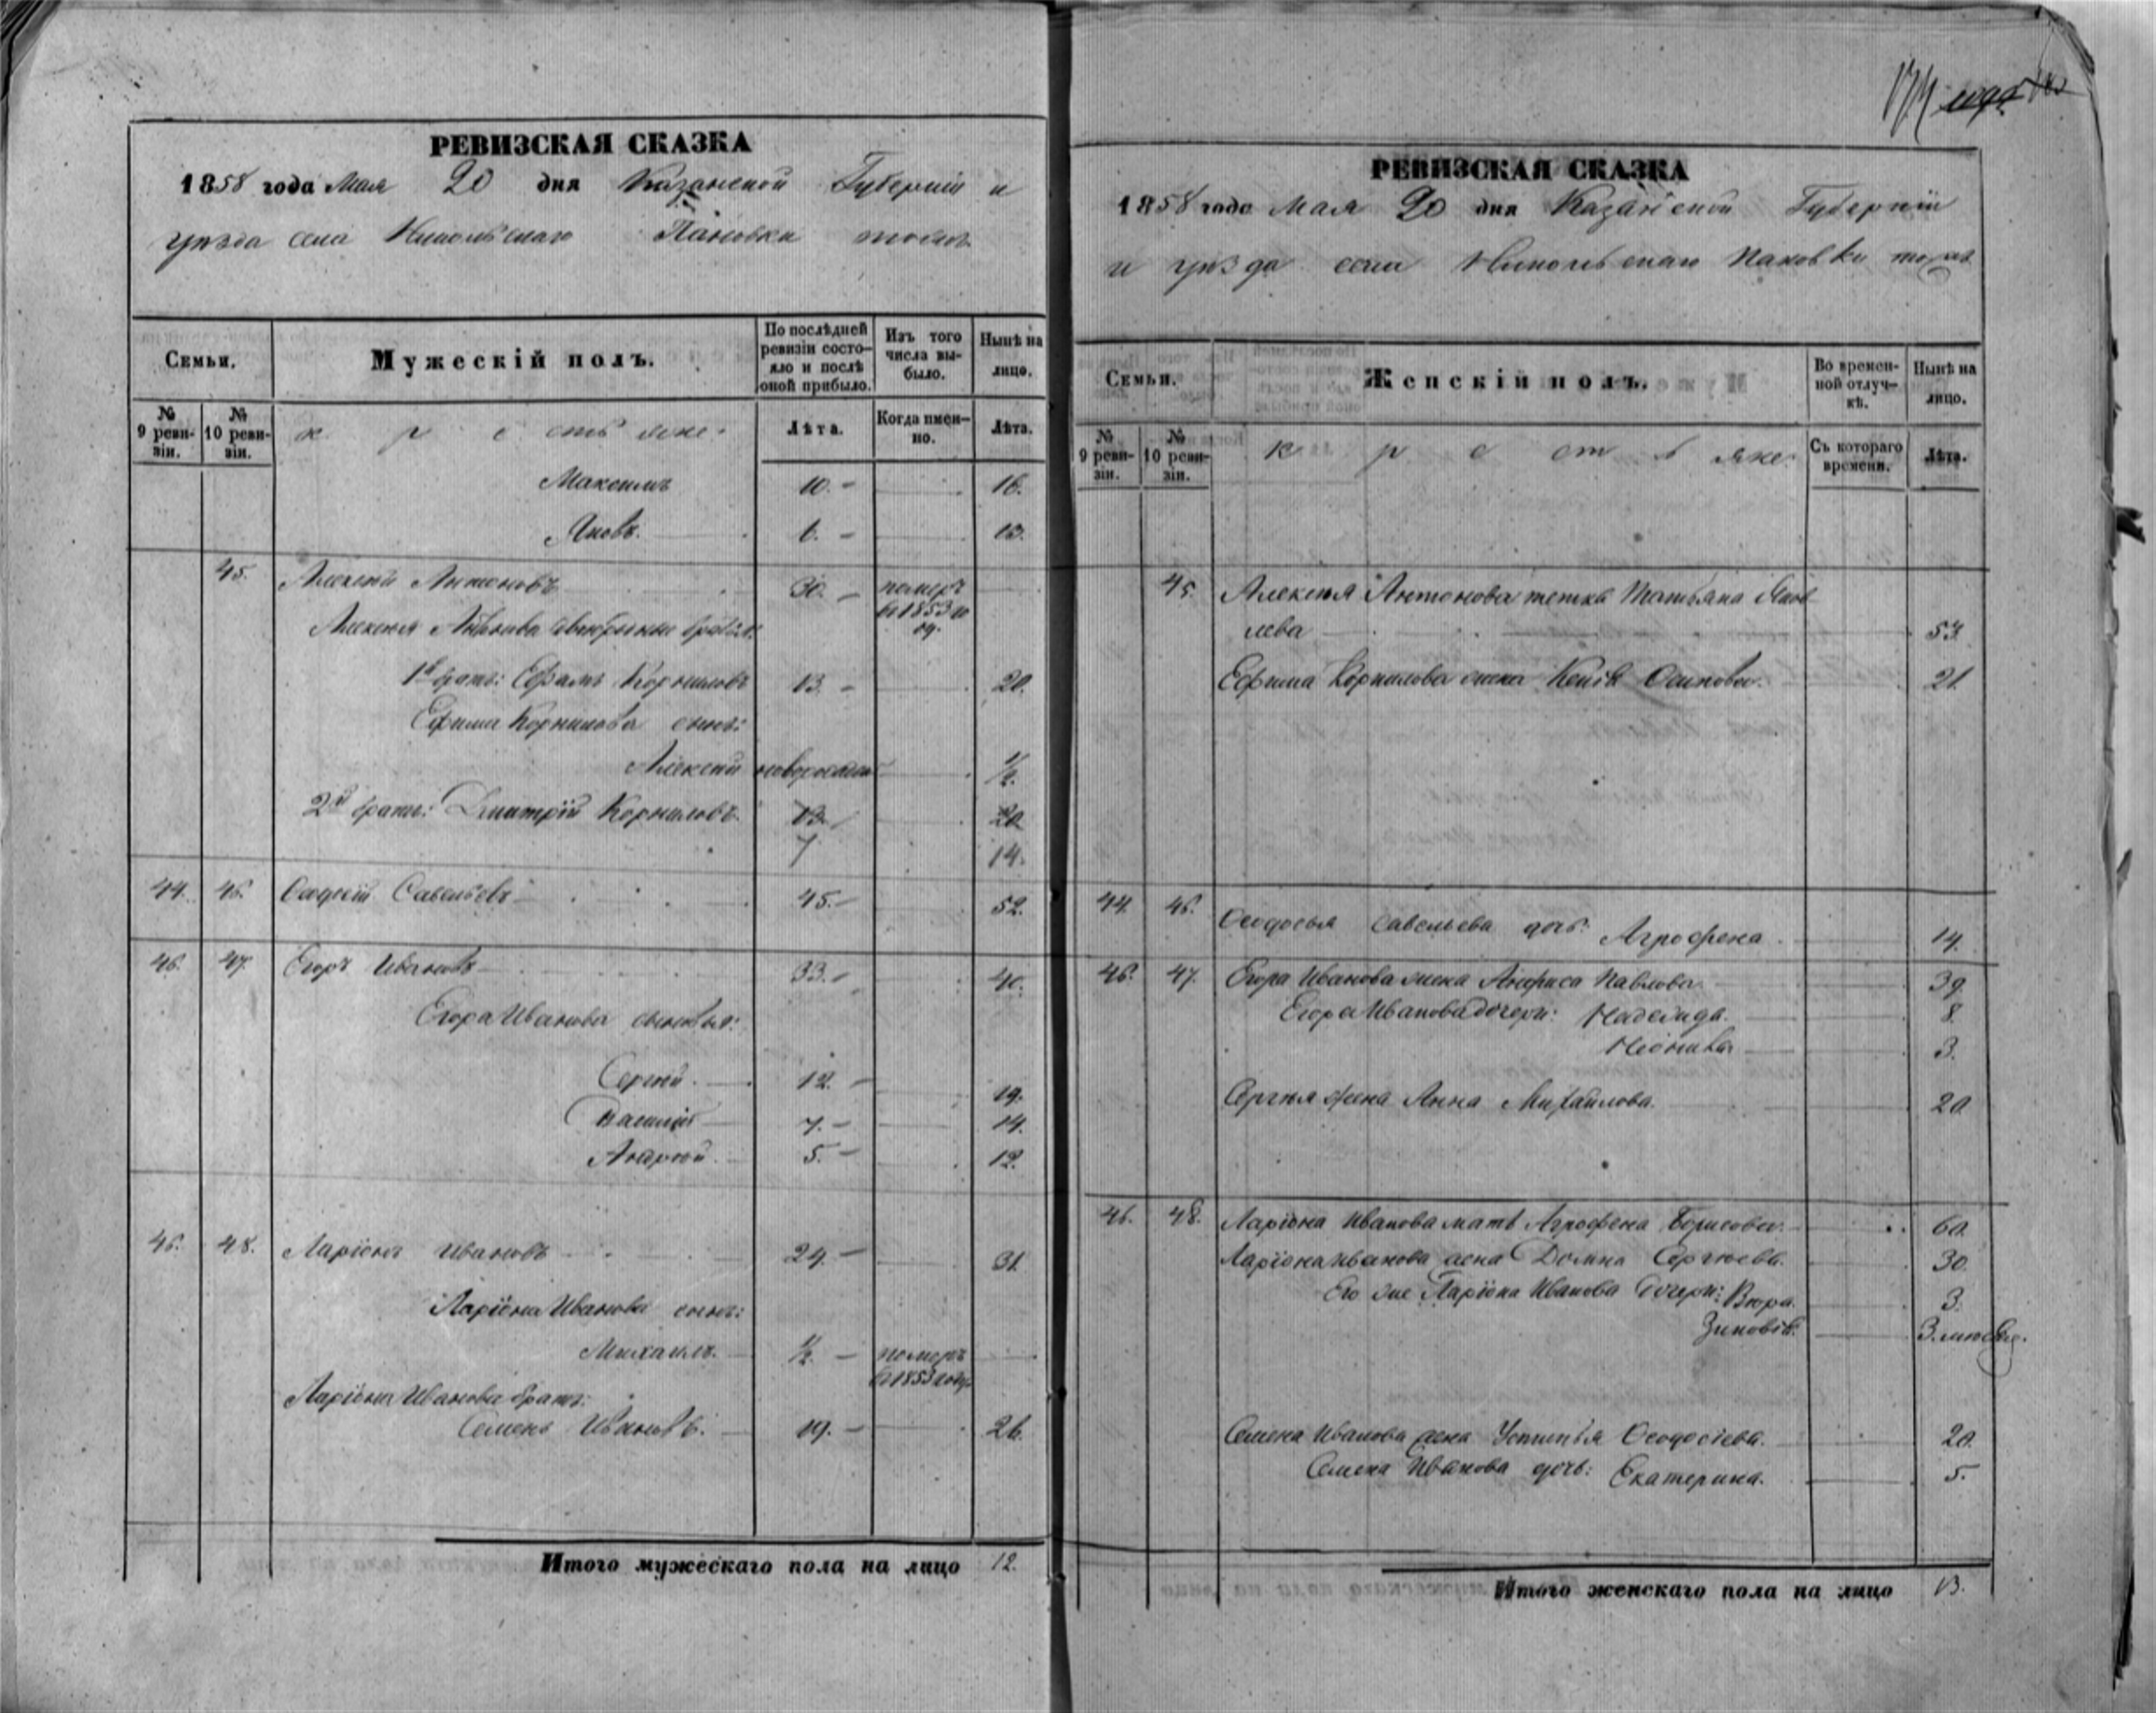 РЕВИЗСКАЯ СКАЗКА
1858 года Мая 20 дня Казанской Губернiи и
уѣзда села Никольскаго Пановка тожъ
Семьи.
Мужескiй полъ.
По послѣдней ревизiи состояло и послѣ оной прибыло.
Изъ того числа выбыло.
Нынѣ на лицо.
№ 9 ревизiи.
№ 10 ревизiи.
крестьяне
Лѣта.
Когда именно.
Лѣта.
Максимъ 10. 16.
Яковъ. 6. 13.
45. Алексѣй Антоновъ 30. померъ въ 1853 год.
Алексѣя Антонова двоюродные братья:
1й братъ: Ефимъ Корниловъ 13. 20.
Ефима Корнилова сынъ:
Алексѣй новорожден 1/2.
2й братъ: Дмитрiй Корниловъ. 13. 20
7 14.
44. 46. Савельевъ 45. 52.
46. 47. Егоръ Ивановъ 33. 40.
Егора Иванова сыновья:
Сергѣй. 12. 19.
Василiй 7. 14.
Андрей. 5. 12.
46. 48. Ларiонъ Ивановъ 24. 31.
Ларiона Иванова сынъ:
Михаилъ. 1/2. померъ въ 1853 году
Ларiона Иванова братъ:
Семенъ Ивановъ. 19. 26.
Итого мужескаго пола на лицо 12.
174
РЕВИЗСКАЯ СКАЗКА
1858 года Мая 20 дня Казанской Губернiи
и уѣзда села Никольскаго Пановки тожъ
Семьи.
Женскiй полъ.
Во временной отлучкѣ.
Нынѣ на лицо.
№ 9 ревизiи.
№ 10 ревизiи.
крестьяне.
Съ котораго времени.
Лѣта.
45. Алексѣя Антонова тетка Татьяна Яков
лева 53.
Ефима Корнилова жена Ксенiя Осипова. 21.
44. 46. Савельева дочь: Агрофена 14.
46. 47. Егора Иванова жена Анфиса Павлова. 39.
Егора Иванова дочери: Надежда. 8.
Неонила 3.
Сергѣя жена Анна Михайлова. 20
46. 48. Ларiона Иванова мать Агрофена Борисова. 60.
Ларiона Иванова жена Домна Сергѣева. 30.
Его же Ларiона Иванова дочери: Вѣра. 3.
Зиновiя.
Семена Иванова жена Устинья Ѳеодосiева. 20.
Семена Иванова дочь: Екатерина. 5.
Итого женскаго пола на лицо 13.